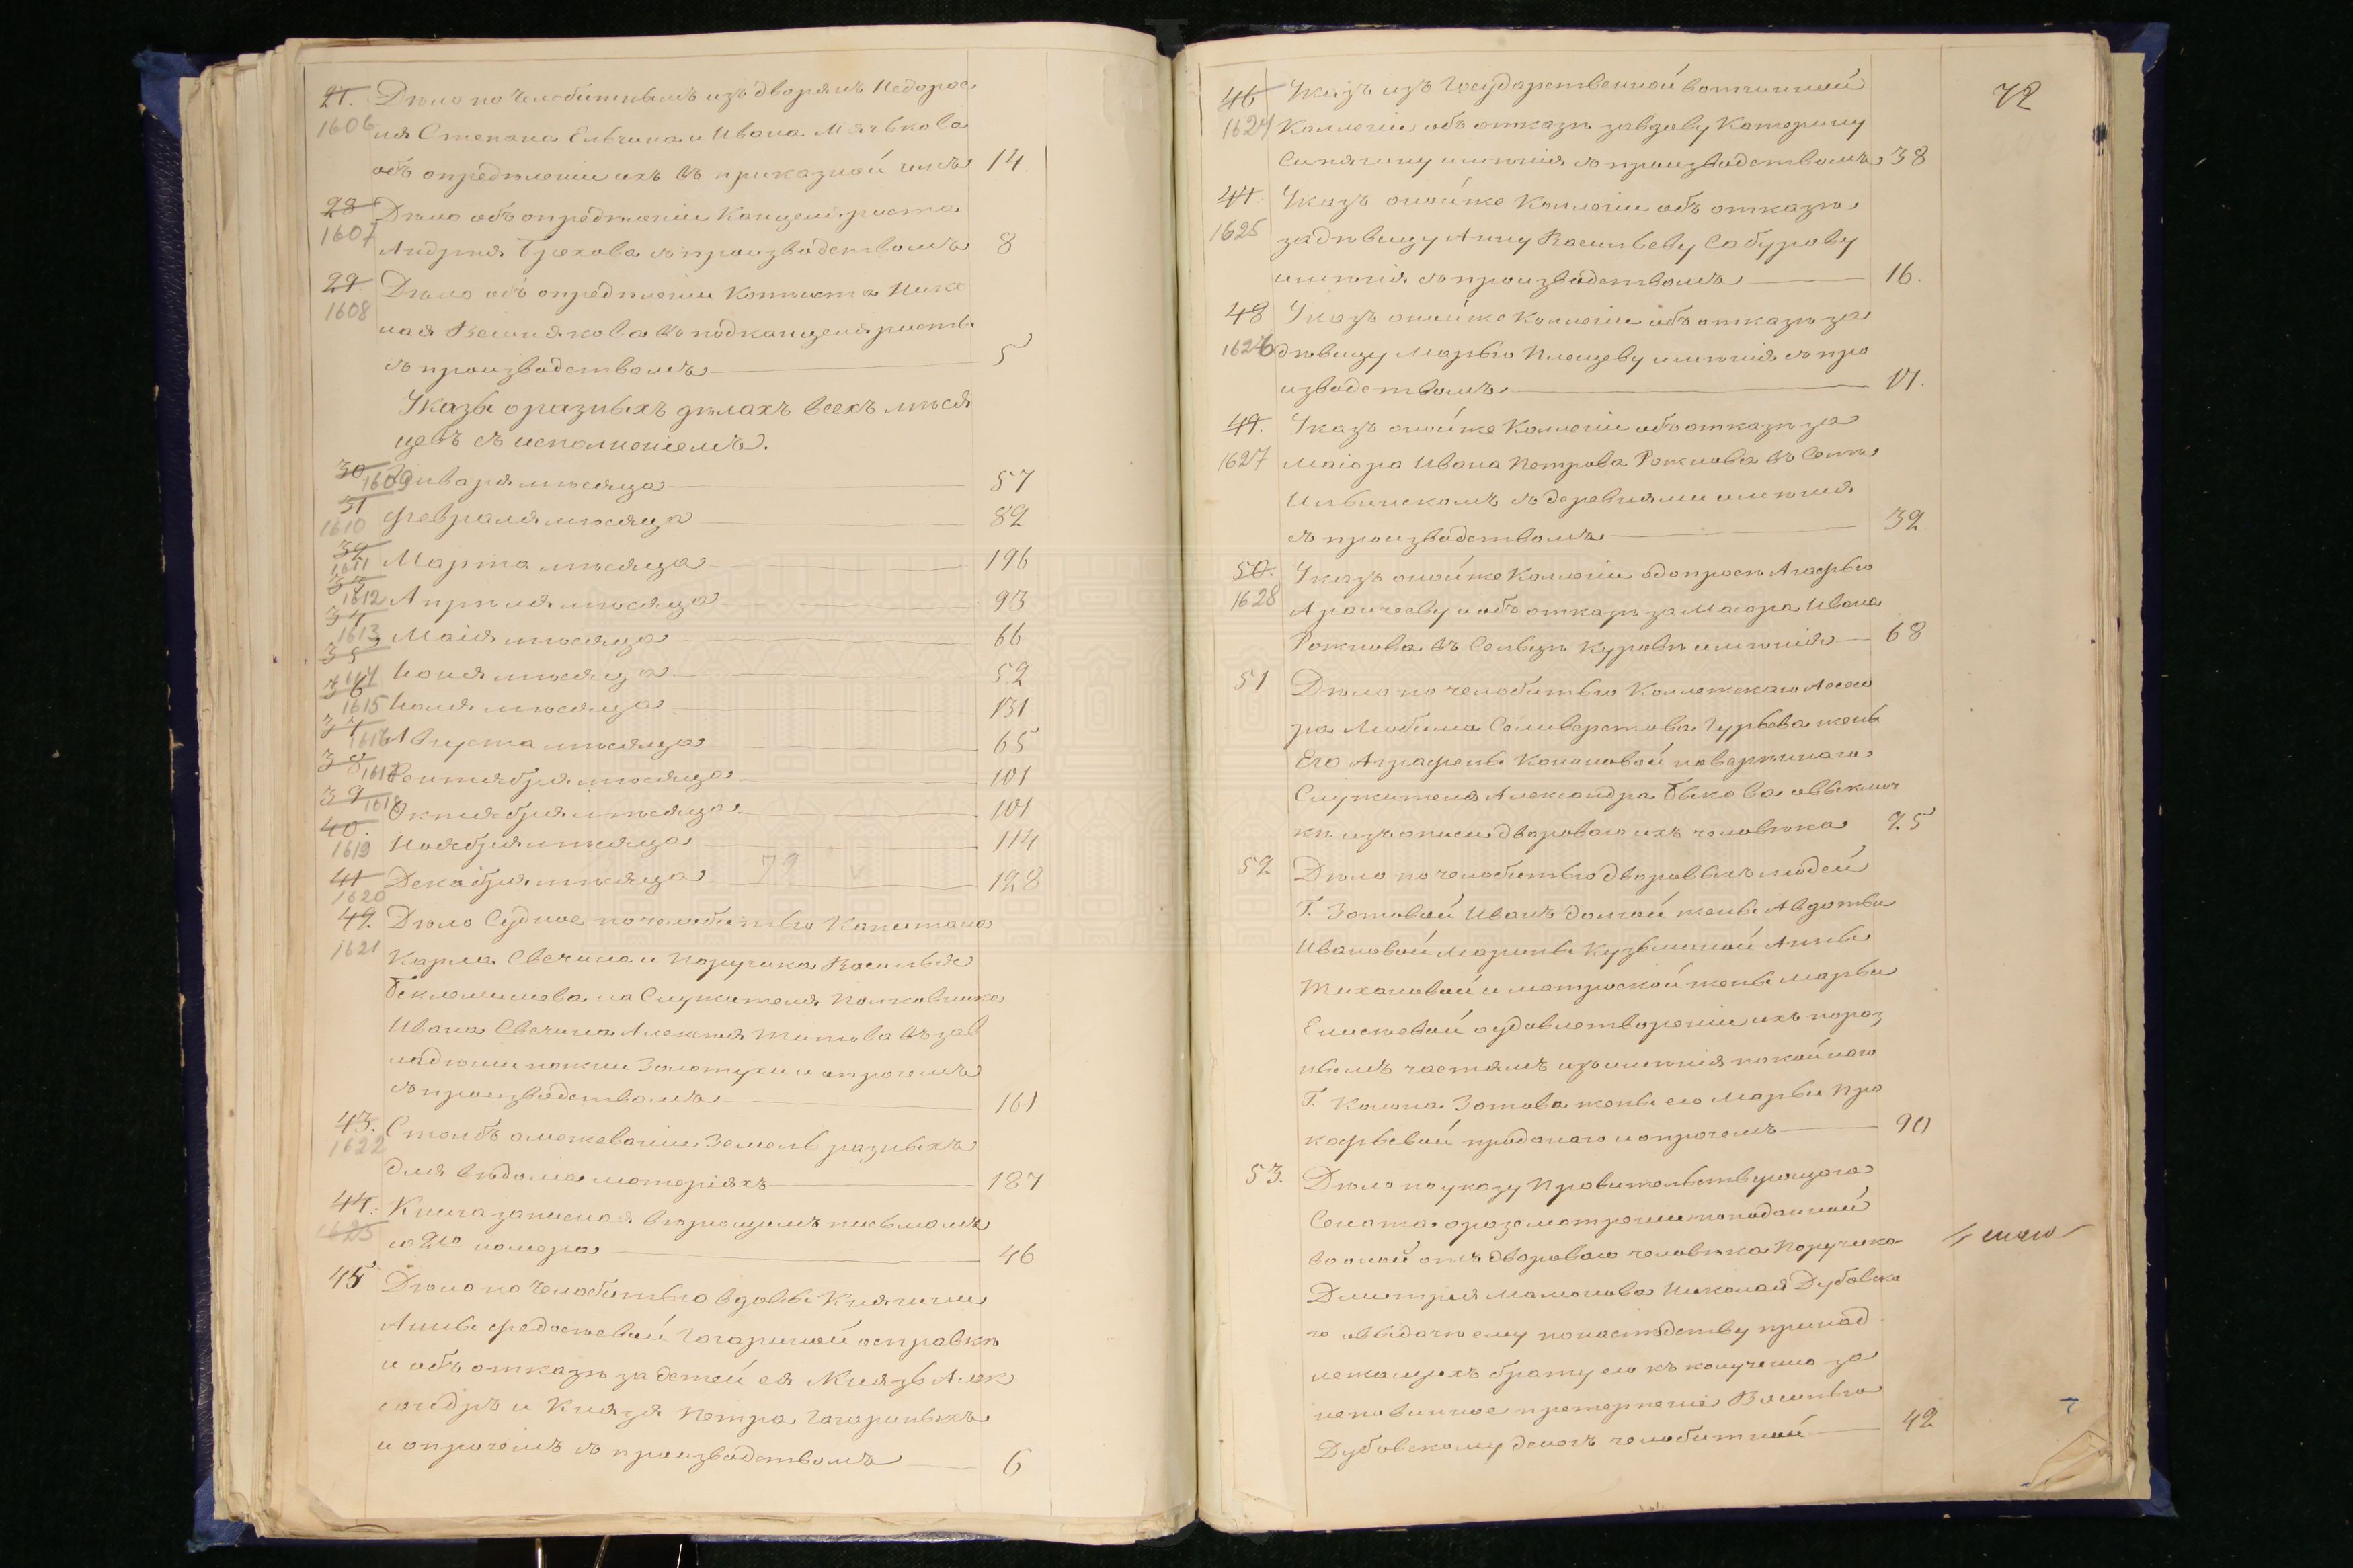 27. Дѣло по челобитнымъ изъ дворянъ Недорос
1606 ля Степана Ельчина и Ивана Мячькова
объ опредѣленіи ихъ въ приказной чинъ 14.
28 Дѣло объ опредѣленіи Канцеляриста
1607 Андрея Грехова съ производствомъ 8
29. Дѣло объ опредѣленіи Копеиста Нико
1608
лая Вешнякова въ подканцеляристы
съ производствомъ 5
Указы о разныхъ дѣлахъ всехъ мѣся
цевъ съ исполненіемъ.
30 1609 Января мѣсяца 57
31
1610 Февраля мѣсяца 82
32
1611 Марта мѣсяца 196
33
1612 Апрѣля мѣсяца 93
34
1613 Маія мѣсяца 66
35
1614 Іюня мѣсяца 52
36
1615 Іюля мѣсяца 131
37
1616 Августа мѣсяца 65
38
1617 Сентября мѣсяца 101
39
1618 Октября мѣсяца 101
40.
1619 Ноября мѣсяца 114
41 Декабря мѣсяца 128
1620
42. Дѣло Судное по челобитью Капитана
1621 Карла Свечина и Поручика Василья
Беклемишева на Служителя Полковника
Ивана Свечина Алексея Титова въ зав
ладѣніи понии Золотухи и опрочемъ
съ производствомъ 161
43. Столбъ омежеваніи Земель разныхъ
1622
для вѣдома материяхъ 187
44. Книга записная вѣрющимъ письмамъ
1623 2го номера 46
45 Дѣло по Челобитью вдовы Княгини
Анны Федосѣевой Гагариной осправкѣ
и объ отказѣ за детей ея Князь Алек
сандръ и Князя Петра Гагариныхъ
и опрочемъ съ производствомъ 6
72
46 Указъ изъ Государственной вотчинной
1624 Коллегіи объ отказѣ завдову Катерину
Сипягину имѣнія съ производствомъ 38
47. Указъ оной же Коллегіи объ отказѣ
1625 задѣвицу Анну Васильеву Сабурову
имѣнія съ производствомъ 16.
48 Указъ оной же Коллегіи объ отказѣ за
1626 дѣвицу Марью Плещеву имѣнія съ про
изводствомъ 11.
49. Указъ оной же Коллегіи объ отказѣ за
1627 Маіора Ивана Петрова Рожнова въ Селѣ
Ильинскомъ съ деревнями имѣния
съ производствомъ 32
50. Указъ оной же Коллегіи о допросѣ Агафью
1628 Аракчееву и объ отказѣ за Маіора Ивана
Рожнова въ Сельцѣ Куровѣ имѣнія 68
51 Дѣло по челобитью Коллежскаго Асесо
ра Любима Селиверстова Гурьева жены
Его Аграфены Кононовой поверѣннаго
Служителя Александра Быкова овыключ
кѣ изъ описи двороваго ихъ человѣка 25
52 Дѣло по челобитью дворовыхъ людей
Г. Зотовой Иванъ жены Авдотьи
Ивановой Марины Кузьминой Анны
Тихановой и матроской жены Марьи
Елисѣевой о удовлетвореніи ихъ пораз
нымъ частямъ изъ имѣнія покойнаго
Г. Конона Зотова жены его Марьи Про
кофьевой приданаго и опрочемъ 90
53. Дѣло по указу Правительствующаго
Сената оразсмотреніи поподанной
во оной отъ двороваго человѣка Поручика
Дмитрия Мамонова Николая Дубовска
го овыдачѣ ему понаследству принад
лежащихъ брату его къ полученію за
неповинное претерпеніе Василью
Дубовскому денегъ челобитной 42